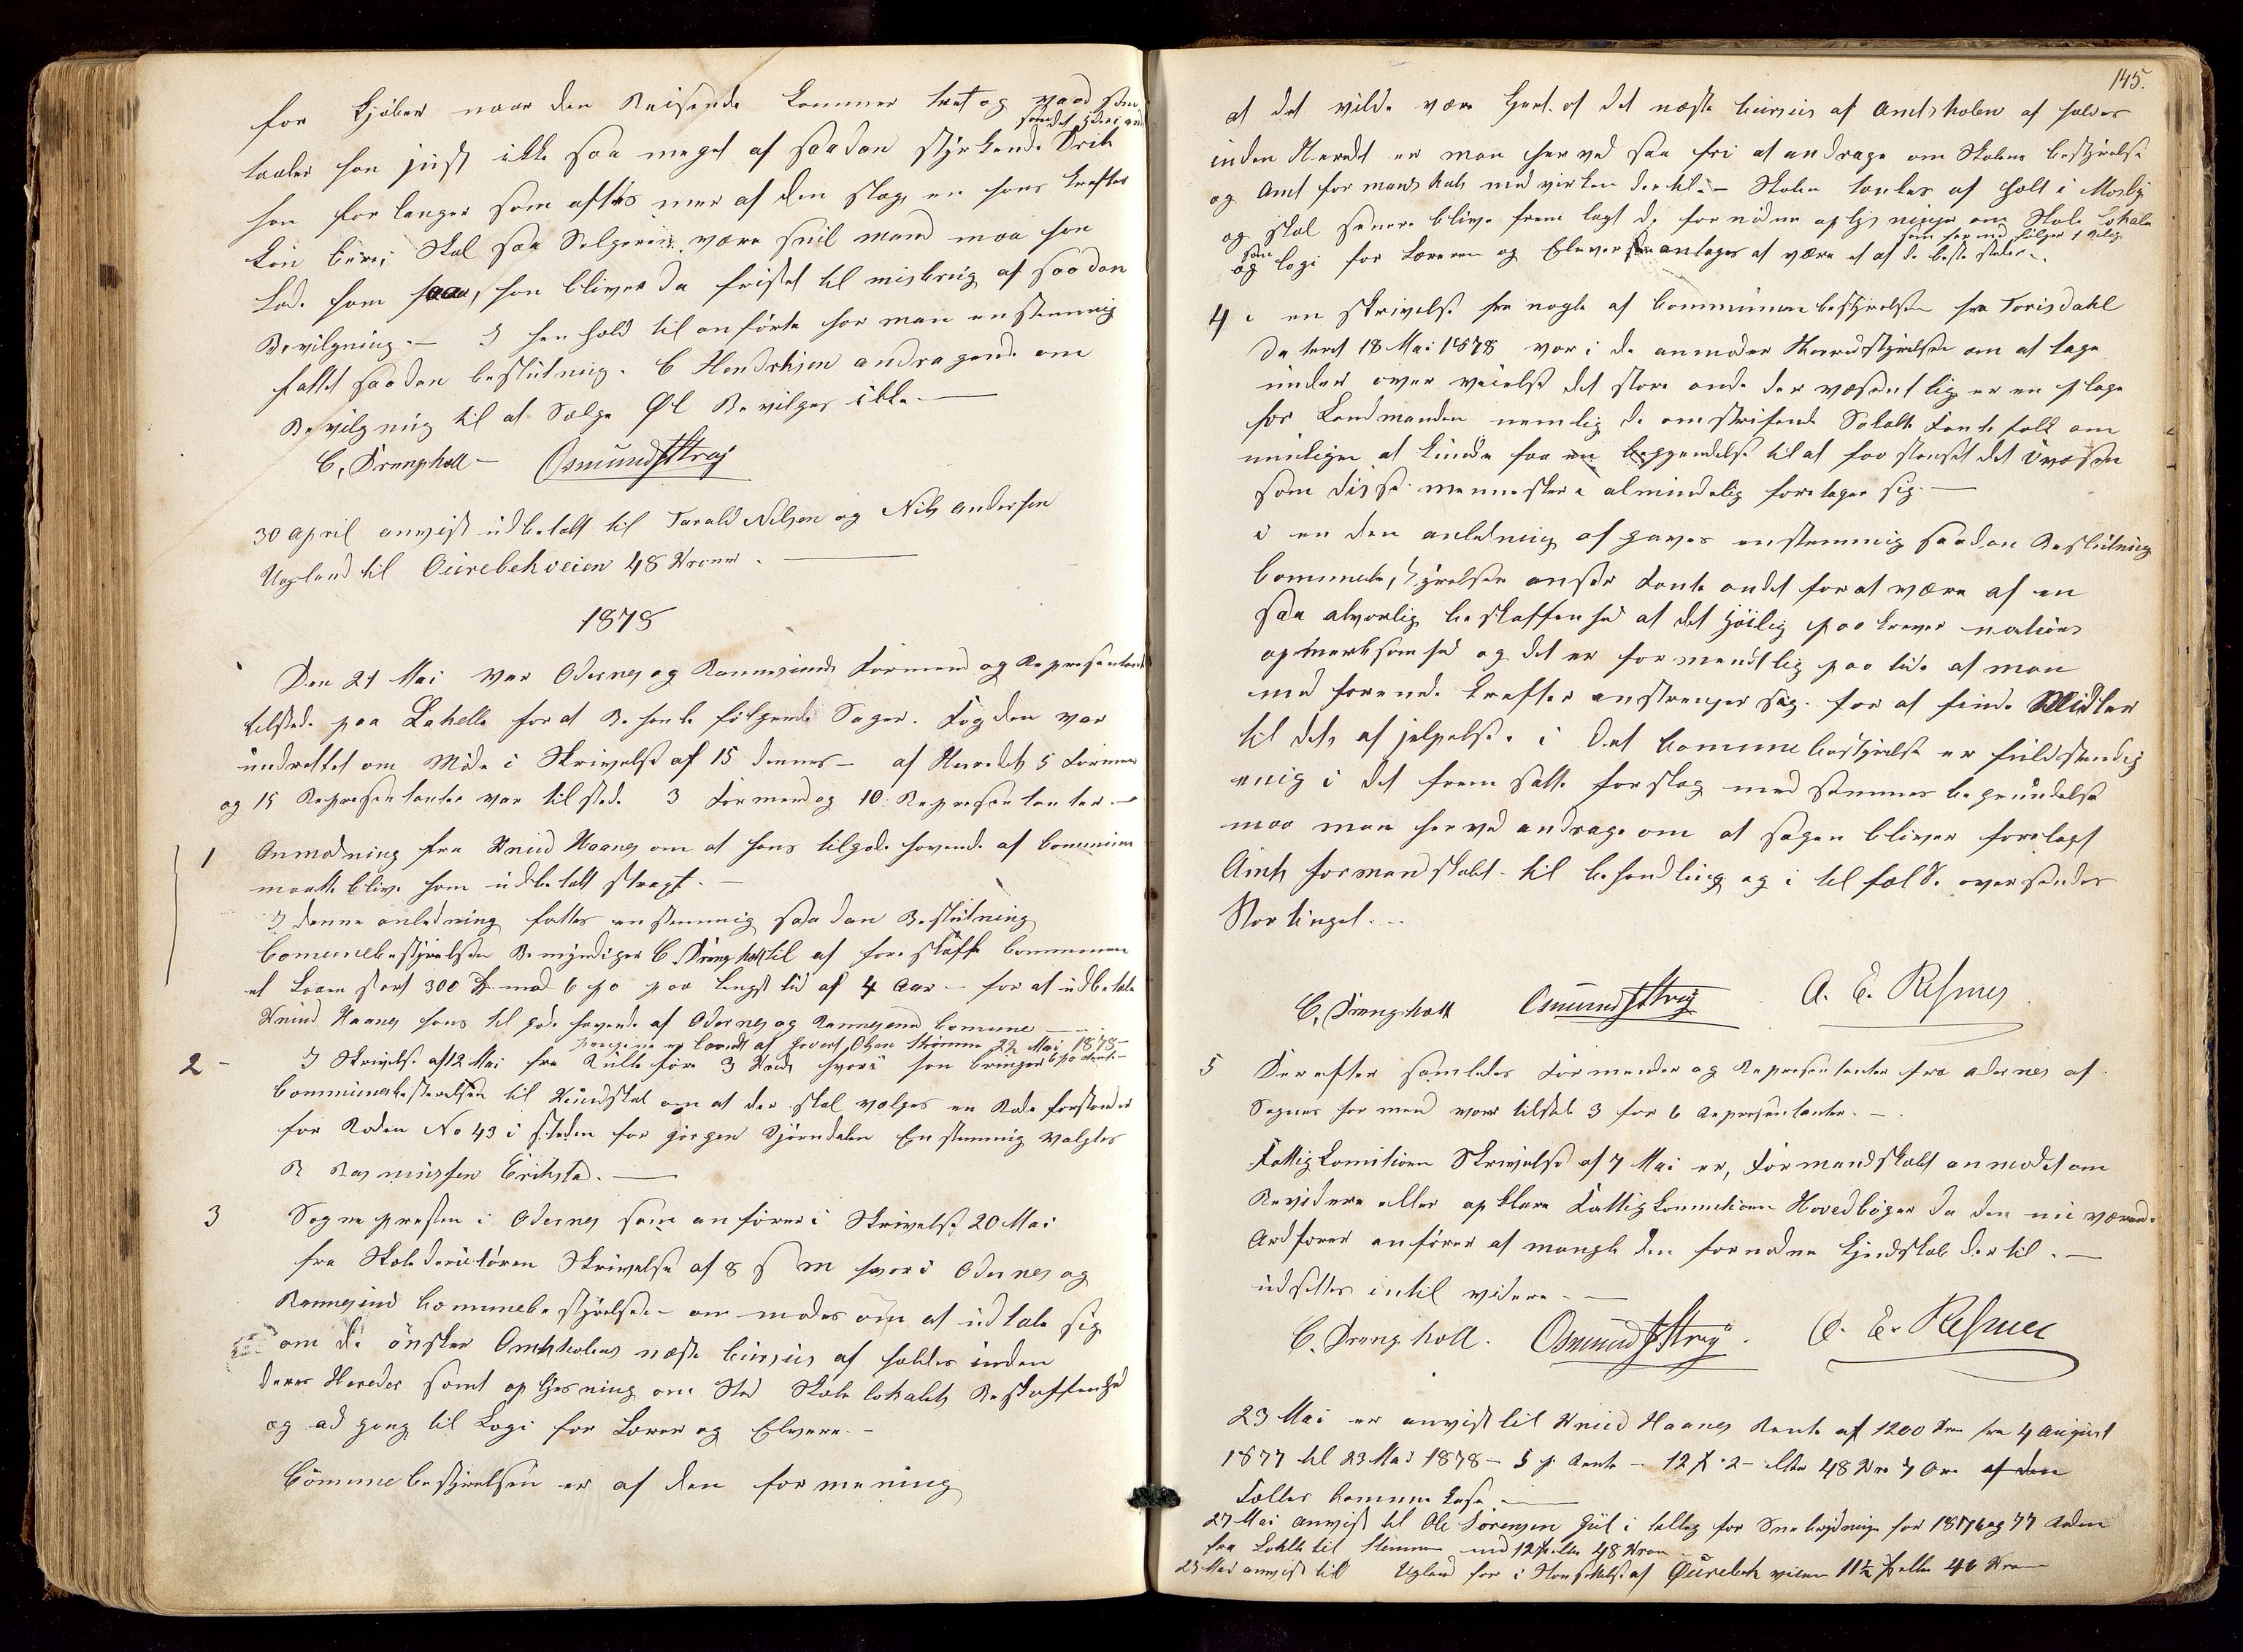 for Kjøber naar den Reisende kommer træt og vaad som
som det hder i an
taaler han just ikke saa meget af saadan styrkende Drik
han forlanger som oftes mer af den slag, en hans krefter
kan bære, Skal saa Selgeren være snil mand maa han
lade ham faaa, han bliver da fristet til misbrug af saadan
Bevilgning. – I henhold til anførte har man enstemmig
fattet saadan beslutning. C Hendriksen andragende om
Bevilgning til at Sælge Øl Bevilges ikke. —
C, Drengholt – Osmund Stray
30 april anvist udbetalt til Tarald Nilsen og Nils Andersen
Ugland til Ourebekveien 48 Kroner. —
1878
Den 21 Mai var Odernes og Rannesunds Formend og Repræsentant
tilstede paa Lahelle for at Behandle følgende Sager. Fogden var
undrettet om Møde i Skrivelse af 15 dennes – af Heredets 5 Formen
og 15 Repræsentanter var tilstede 3 Formend og 10 Repræsentanter. –
1 Anmodning fra Knud Haanes om at hans tilgodehavende af Communen
maatte blive ham udbetalt strags. –
I denne anledning fattes enstemmig saadan Beslutning
Comunebestyrelsen Bemyndiger C. Drengholt til at foreskaffe Communen
et Laan stort 300 Spd mod 6 po paa lengst tid af 4 Aar – for at udbetale
Knud Haanes hans tilgode havende af Odernes og Rannesund Comune —
pengene er laandt af Govert Olsen Strømme 22 Mai 1878 –
6 po Rente –
2 – I Skrivelse af 12 Mai fra Rulleføre 3 Kreds hvori han bringer
Communebestyrelsen til Kundskab om at der skal vælges en Rode forstander
for Roden No 43 i steden for Jørgen Bjørndalen Enstemmig valgtes
R Rasmussen Erikstad. —
3 Sognepresten i Odernes som anfører i Skrivelse 20 Mai
fra Skoledirektøren Skrivelse af 8 s m hvori Odernes og
Rannesund Comunebestyrelse – anmodes om at udtale sig
om de ønsker Amtskolens næste Cursus at holdes inden
deres Hereder samt oplysning om Sted Skole lokalets Beskaffenhed
og adgang til Logi for Lærer og Elvere. –
Comunebestyrelsen er af den formening
145.
at det vilde være hert. at det næste Cursus af Amtskolen at holdes
inden Heredt er man herved saa fri at andrage om Skolens bestyrelse
og Amtformandskab medvirken dertil. – Skolen tænkes at holt i Mosby
og skal senere blive frem lagt de fornødne oplysninger om Skole Lokale
som herved følger 1 bilag
og logi for Læreren og Elever som antages at være et af de beste steder. –
4 i en skrivelse fra nogle af Communebestyrelsen fra Torisdahl
dateret 18 Mai 1878 vor i de anmoder Heredstyrelsen om at tage
under over veielse det store onde der væsentlig er en plage
for Landmanden nemlig de omstrifende Sakalte Fantefolk om
muligen at kunde faa en begyndelse til at faa standset det uvæsen
som disse mennesker i almindelig foretager sig. —
i en den anledning af gaves enstemmig saadan Beslutning
Comunebestyrelsen anser Fante ondet for at være af en
saa alvorlig beskaffenhed at det høilig paa krever nations
opmerksomhed og det er formendtlig paa tide at man
med forende krefter anstrenger sig. for at finde Midler
til dets afjelpelse. i Det Comunebestyrelse er fuldstendig
enig i det fremsatte forslag med sammes begrundelse
maa man herved andrage om at sagen bliver forelagt
Amts formandskabet til behandling og i tilfælde oversendes
Stortinget. –
C, Drengholt Osmund Stray A. E. Refsnes
5 Derefter samledes Formender og Repræsentanter fra Odernes af
Sognes formend vare tilstede 3 for 6 Repræsentanter. –
Fattigkomitioen Skrivelse af 7 Mai er, Formandskabet anmodet om
Revidere eller opklare Fattigkommitioen Hovedbøger da den nu værende
Ordforer anfører at mangle den fornødne Kjendskab dertil. –
udsettes indtil videre. –
C. Drengholt. Osmund Stray. A. E. Refsnes
23 Mai er anvist til Knud Haanes Rente af 1200 Kro fra 4 August
1877 til 23 Mai 1878 – 5 p Rente – 12 . 2 – eller 48 Kro 7 Øre af den
Felles Komune Kase. —
27 Mai anvist til Ole Sørensen Gül i tillæg for Snebrydninge for 1876 og 77 Roden
fra Lahelle til Strømme med 12 eller 48 Kron
23 Mai anvist til Ugland for i Standsettelse af Øurebek veien 11½ eller 46 Kron